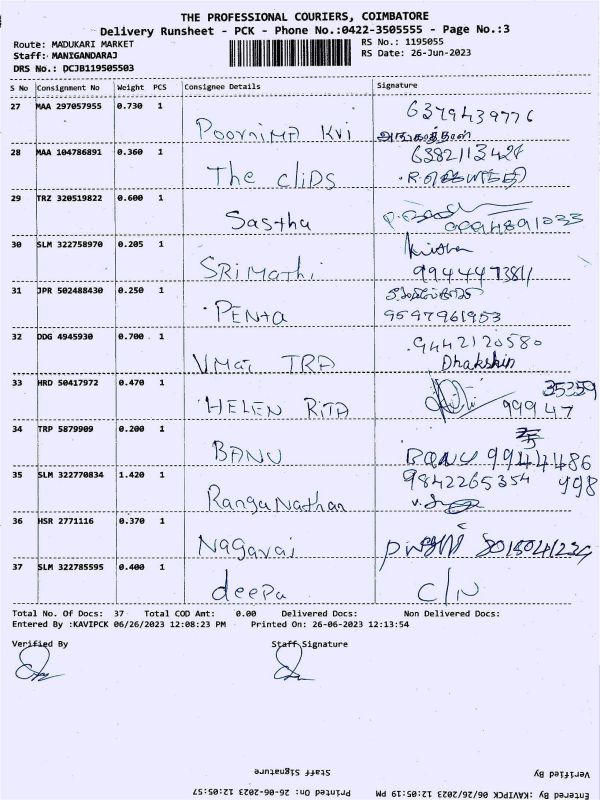 THE PROFESSIONAL COURIERS, COIMBATORE
Delivery Runsheet - PCK - Phone No.:0422-3505555 - Page No.:3
Route: MADUKARI MARKET
RS No.: 1195055
Staff: MANIGANDARAJ
RS Date: 26-Jun-2023
DRS No.: DCJB119505503
S No Consignment No Weight PCS Consignee Details Signature
27 MAA 297057955 0.730 1 Poornima Kvi 6379439776
28 MAA 104786891 0.360 1 The cliDs
29 TRZ 320519822 0.600 1 Sastha
30 SLM 322758970 0.205 1 SRiMathi Krishna
31 JPR 502488430 0.250 1 PENta
9597961953
32 DDG 4945930 0.700 1 VMai TRA 9442120580
Dhakshin
33 HRD 50417972 0.470 1 HELEN RiTA 35359
99947
34 TRP 5879909 0.200 1 BANU
BANU 9944486
998
35 SLM 322770834 1.420 1 RanguNathan 9842265354
36 HSR 2771116 0.370 1 Nagavai
37 SLM 322785595 0.400 1 deepa C/N
Total No. Of Docs: 37 Total COD Amt: 0.00 Delivered Docs: Non Delivered Docs:
Entered By :KAVIPCK 06/26/2023 12:08:23 PM Printed On: 26-06-2023 12:13:54
Verified By Staff Signature
Verified By Staff Signature
Entered By :KAVIPCK 06/26/2023 12:05:19 PM Printed On: 26-06-2023 12:05:57